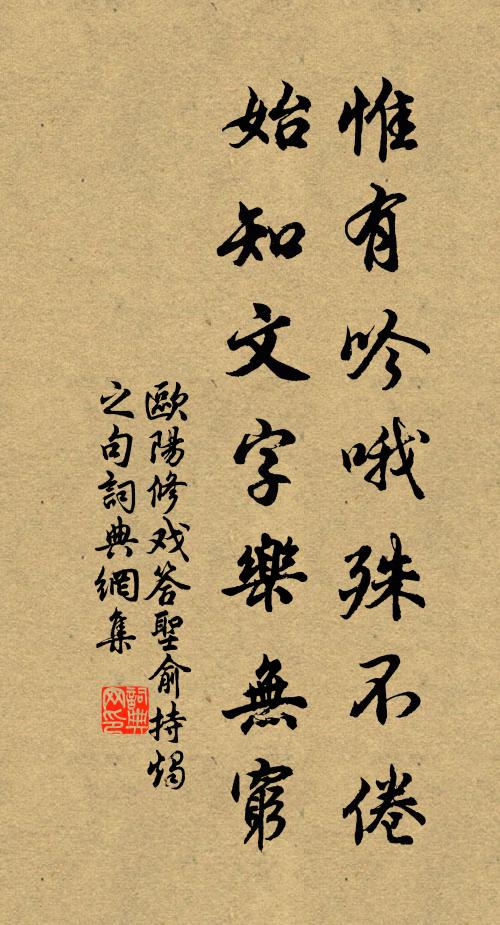 惟有吟哦殊不倦
始知文字樂無窮
歐陽修戏答聖俞持燭
之句詞典網集
詞典网印